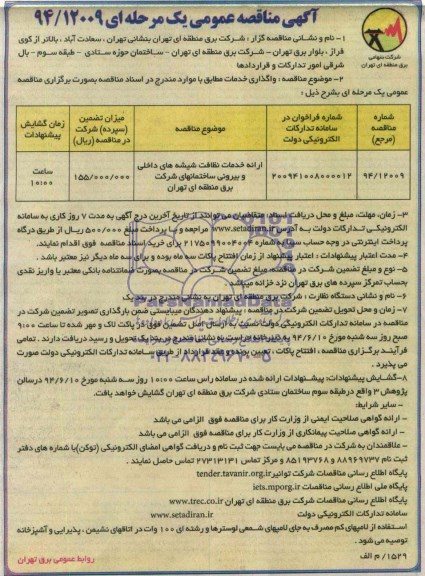 آگهی مناقصه عمومی یک مرحله ای ۹۴/۱۲۰۰۹
شرکت سهامی
برق منطقه ای تهران
۱- نام و نشانی مناقصه گزار : شرکت برق منطقه ای تهران بنشانی تهران ، سعادت آباد ، بالاتر از کوی
فراز ، بلوار برق تهران - شرکت برق منطقه ای تهران - ساختمان حوزه ستادی - طبقه سوم - بال
شرقی امور تدارکات و قراردادها
۲- موضوع مناقصه : واگذاری خدمات مطابق با موارد مندرج در اسناد مناقصه بصورت برگزاری مناقصه
عمومی یک مرحله ای بشرح ذیل :
شماره مناقصه (مرجع)
شماره فراخوان در سامانه تدارکات الکترونیکی دولت
موضوع مناقصه
میزان تضمین (سپرده) شرکت در مناقصه (ریال)
زمان گشایش پیشنهادات
۹۴/۱۲۰۰۹
۲۰۰۹۴۱۰۰۸۰۰۰۰۱۲
ارائه خدمات نظافت شیشه های داخلی و بیرونی ساختمانهای شرکت برق منطقه ای تهران
۱۵۵/۰۰۰/۰۰۰
ساعت ۱۰:۰۰
۳- زمان، مهلت، مبلغ و محل دریافت اسناد: متقاضیان می توانند از تاریخ آخرین درج آگهی به مدت ۷ روز کاری به سامانه
الکترونیکی تدارکات دولت به آدرس www.setadiran.ir مراجعه و با پرداخت مبلغ ۵۰۰/۰۰۰ ریال از طریق درگاه
پرداخت اینترنتی در وجه حساب سیبا به شماره ۲۱۷۵۰۹۹۰۰۴۰۰۶ برای خرید اسناد مناقصه فوق اقدام نمایند.
۴- مدت اعتبار پیشنهادات : اعتبار پیشنهاد از زمان افتتاح پاکات سه ماه بوده و برای سه ماه دیگر نیز معتبر باشد .
۵- نوع و مبلغ تضمین شرکت در مناقصه: مبلغ تضمین شرکت در مناقصه بصورت ضمانتنامه بانکی معتبر یا واریز نقدی
بحساب تمرکز سپرده های برق تهران نزد خزانه میباشد.
۶- نام و نشانی دستگاه نظارت : شرکت برق منطقه ای تهران به نشانی مندرج در بند یک
۷- زمان و محل تحویل تضمین شرکت در مناقصه : پیشنهاد دهندگان میبایستی ضمن بارگذاری تصویر تضمین شرکت در
مناقصه در سامانه تدارکات الکترونیکی دولت نسبت به ارسال اصل تضمین فوق در پاکت لاک و مهر شده تا ساعت ۹:۰۰
صبح روز سه شنبه مورخ ۹۴/۶/۱۰ به دبیرخانه حراست به نشانی مندرج در بند یک تحویل و رسید دریافت دارند . تمامی
فرآیند برگزاری مناقصه ، افتتاح پاکات ، تعیین برنده و عقد قرارداد از طریق سامانه تدارکات الکترونیکی دولت صورت
می پذیرد .
۸- گشایش پیشنهادات: پیشنهادات ارائه شده در سامانه راس ساعت ۱۰:۰۰ روز سه شنبه مورخ ۹۴/۶/۱۰ درسالن
پژوهش ۳ واقع درطبقه سوم ساختمان ستادی شرکت برق منطقه ای تهران گشایش خواهد یافت.
- سایر شرایط:
- ارائه گواهی صلاحیت ایمنی از وزارت کار برای مناقصه فوق الزامی می باشد
- ارائه گواهی صلاحیت پیمانکاری از وزارت کار برای مناقصه فوق الزامی می باشد
- علاقمندان به شرکت در مناقصه می بایست جهت ثبت نام و دریافت گواهی امضای الکترونیکی (توکن)با شماره های دفتر
ثبت نام ۸۸۹۶۹۷۳۷ و ۸۵۱۹۳۷۶۸ و مرکز تماس ۲۷۳۱۳۱۳۱ تماس حاصل نمایند .
پایگاه اطلاع رسانی مناقصات شرکت توانیر tender.tavanir.org.ir
پایگاه ملی اطلاع رسانی مناقصات iets.mporg.ir
پایگاه اطلاع رسانی مناقصات شرکت برق منطقه ای تهران www.trec.co.ir
سامانه تدارکات الکترونیکی دولت www.setadiran.ir
استفاده از لامپهای کم مصرف به جای لامپهای شمعی لوسترها و رشته ای ۱۰۰ وات در اتاقهای نشیمن ، پذیرایی و آشپزخانه
توصیه می شود .
۱۵۲۹/ م الف
روابط عمومی برق تهران
ParsNamadData
۰۲۱-۸۸۳۴۹۶۷۰-۵